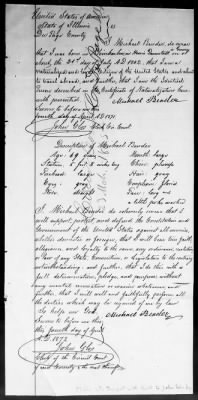 United States of America
State of Illinois } ss
Du Page County
I Michael Bender do swear
that I was born in
about the 21st day of July A.D. 1802. that I am a
naturalized and citizen of the United States and about
to travel abroad and further, that I am the identical
Person described in the Certificate of Naturalization here
with presented. Michael Bender
Sworn to before me this
fourth day of April A.D. 1871
John Glos Clerk Co Court
Description of Michael Bender
Age 69 years Mouth large
Stature 5 feet 8 inches Eng Chin
Forehead large Hair gray
Eyes gray Complexion florid
Nose Face long
I Michael Bender do solemnly swear that I
will support, protect and defend the Constitution and
Government of the United States against all enemies,
whether domestic or foreign; that I will bear true faith,
allegiance, and loyalty to the same, any ordinance, resolution
or law of any State Convention, or Legislature to the contrary
notwithstanding; and further, that I do this with a
full determination, pledge, and purpose, without
any mental reservation or evasion whatsoever; and
further, that I will well and faithfully perform all
the duties which may be required of me by law
So help me God.
Sworn to before me this Michael Bender
fourth day of April
A.D. 1871
John Glos
Clerk of the Circuit Court
of said County